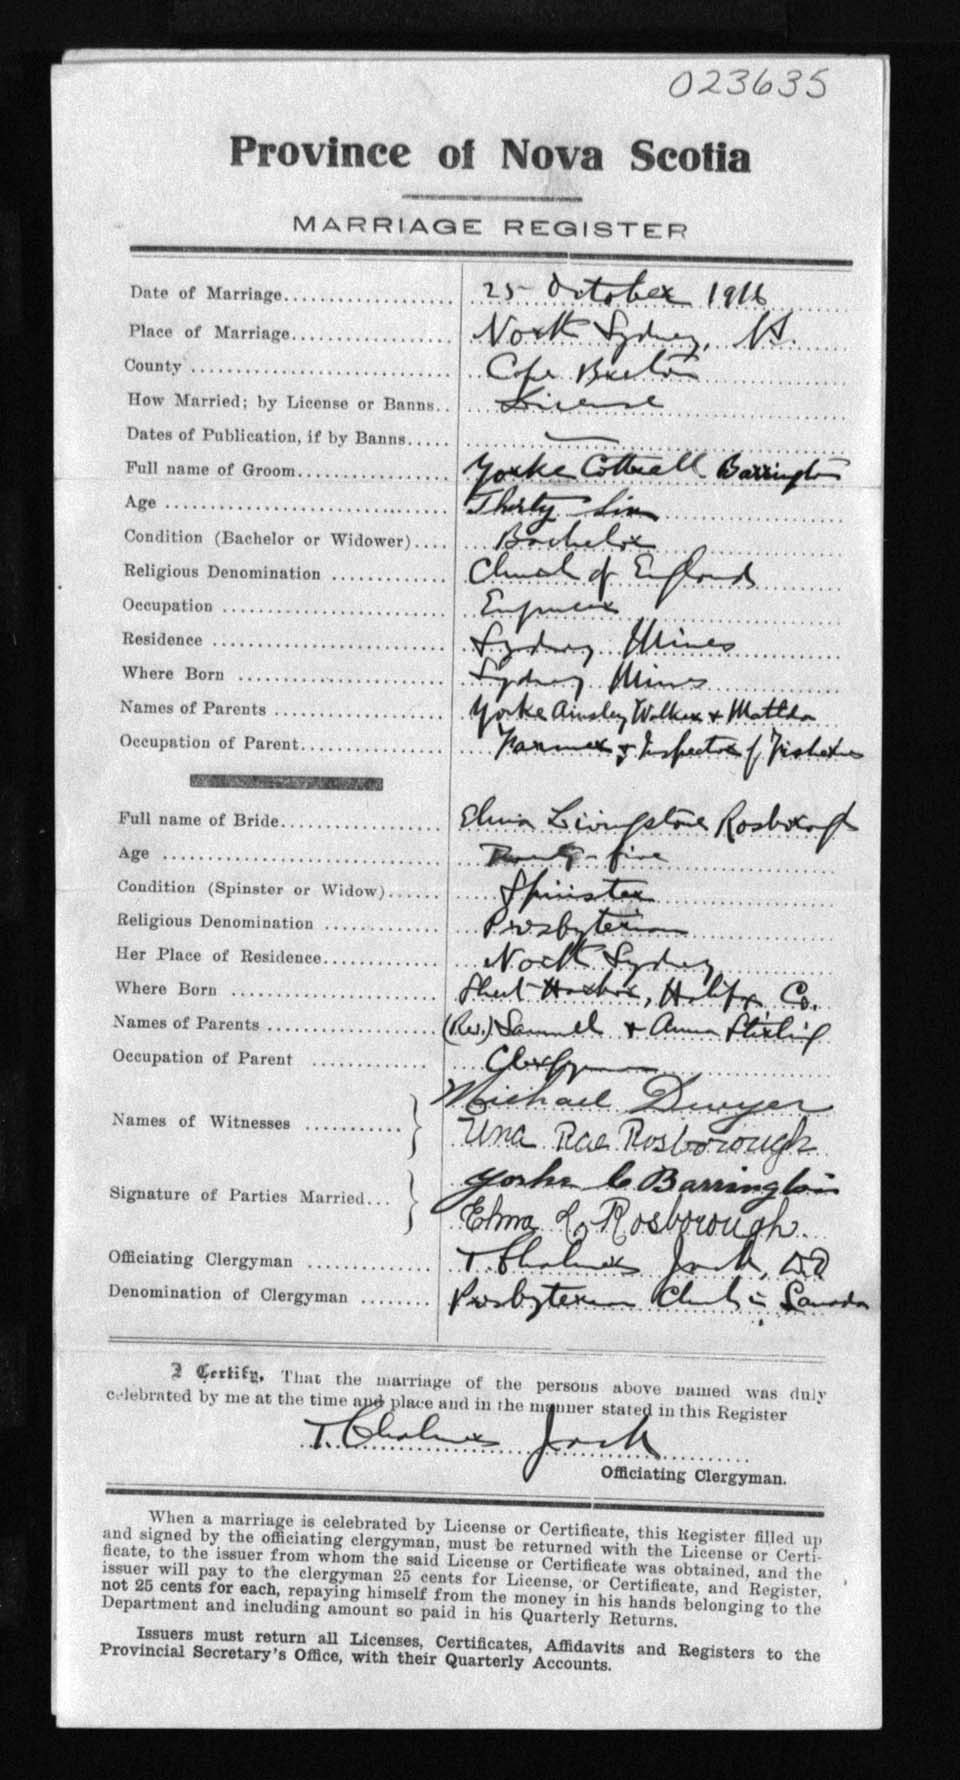 023635
Province of Nova Scotia
MARRIAGE REGISTER
Date of Marriage.................... 25 October 1916
Place of Marriage................... North Sydney, N.S.
County .............................. Cape Breton
How Married; by License or Banns.. License
Dates of Publication, if by Banns..... —
Full name of Groom.................. Yorke Cottnall Barrington
Age ................................. Thirty-Six
Condition (Bachelor or Widower).... Bachelor
Religious Denomination ............. Church of England
Occupation .......................... Engineer
Residence ........................... Sydney Mines
Where Born ......................... Sydney Mines
Names of Parents .................... Yorke Ainsley Walker & Matilda
Occupation of Parent................. Farmer & Inspector of Fisheries
Full name of Bride................... Elma Livingstone Rosborough
Age ................................. Twenty-five
Condition (Spinster or Widow)....... Spinster
Religious Denomination ............. Presbyterian
Her Place of Residence............... North Sydney
Where Born ......................... Sheet Harbor, Halifax Co.
Names of Parents .................... (Rev.) Samuel & Anna Stirling
Occupation of Parent ............... Clergyman
Names of Witnesses ........... } Michael Dwyer
Una Rae Rosborough
Signature of Parties Married... } Yorke C Barrington
Elma L. Rosborough.
Officiating Clergyman .............. T. Chalmers Jack, DD
Denomination of Clergyman ........ Presbyterian Church in Canada
I Certify, That the marriage of the persons above named was duly
celebrated by me at the time and place and in the manner stated in this Register
T. Chalmers Jack
Officiating Clergyman.
When a marriage is celebrated by License or Certificate, this Register filled up
and signed by the officiating clergyman, must be returned with the License or Certi-
ficate, to the issuer from whom the said License or Certificate was obtained, and the
issuer will pay to the clergyman 25 cents for License, or Certificate, and Register,
not 25 cents for each, repaying himself from the money in his hands belonging to the
Department and including amount so paid in his Quarterly Returns.
Issuers must return all Licenses, Certificates, Affidavits and Registers to the
Provincial Secretary's Office, with their Quarterly Accounts.